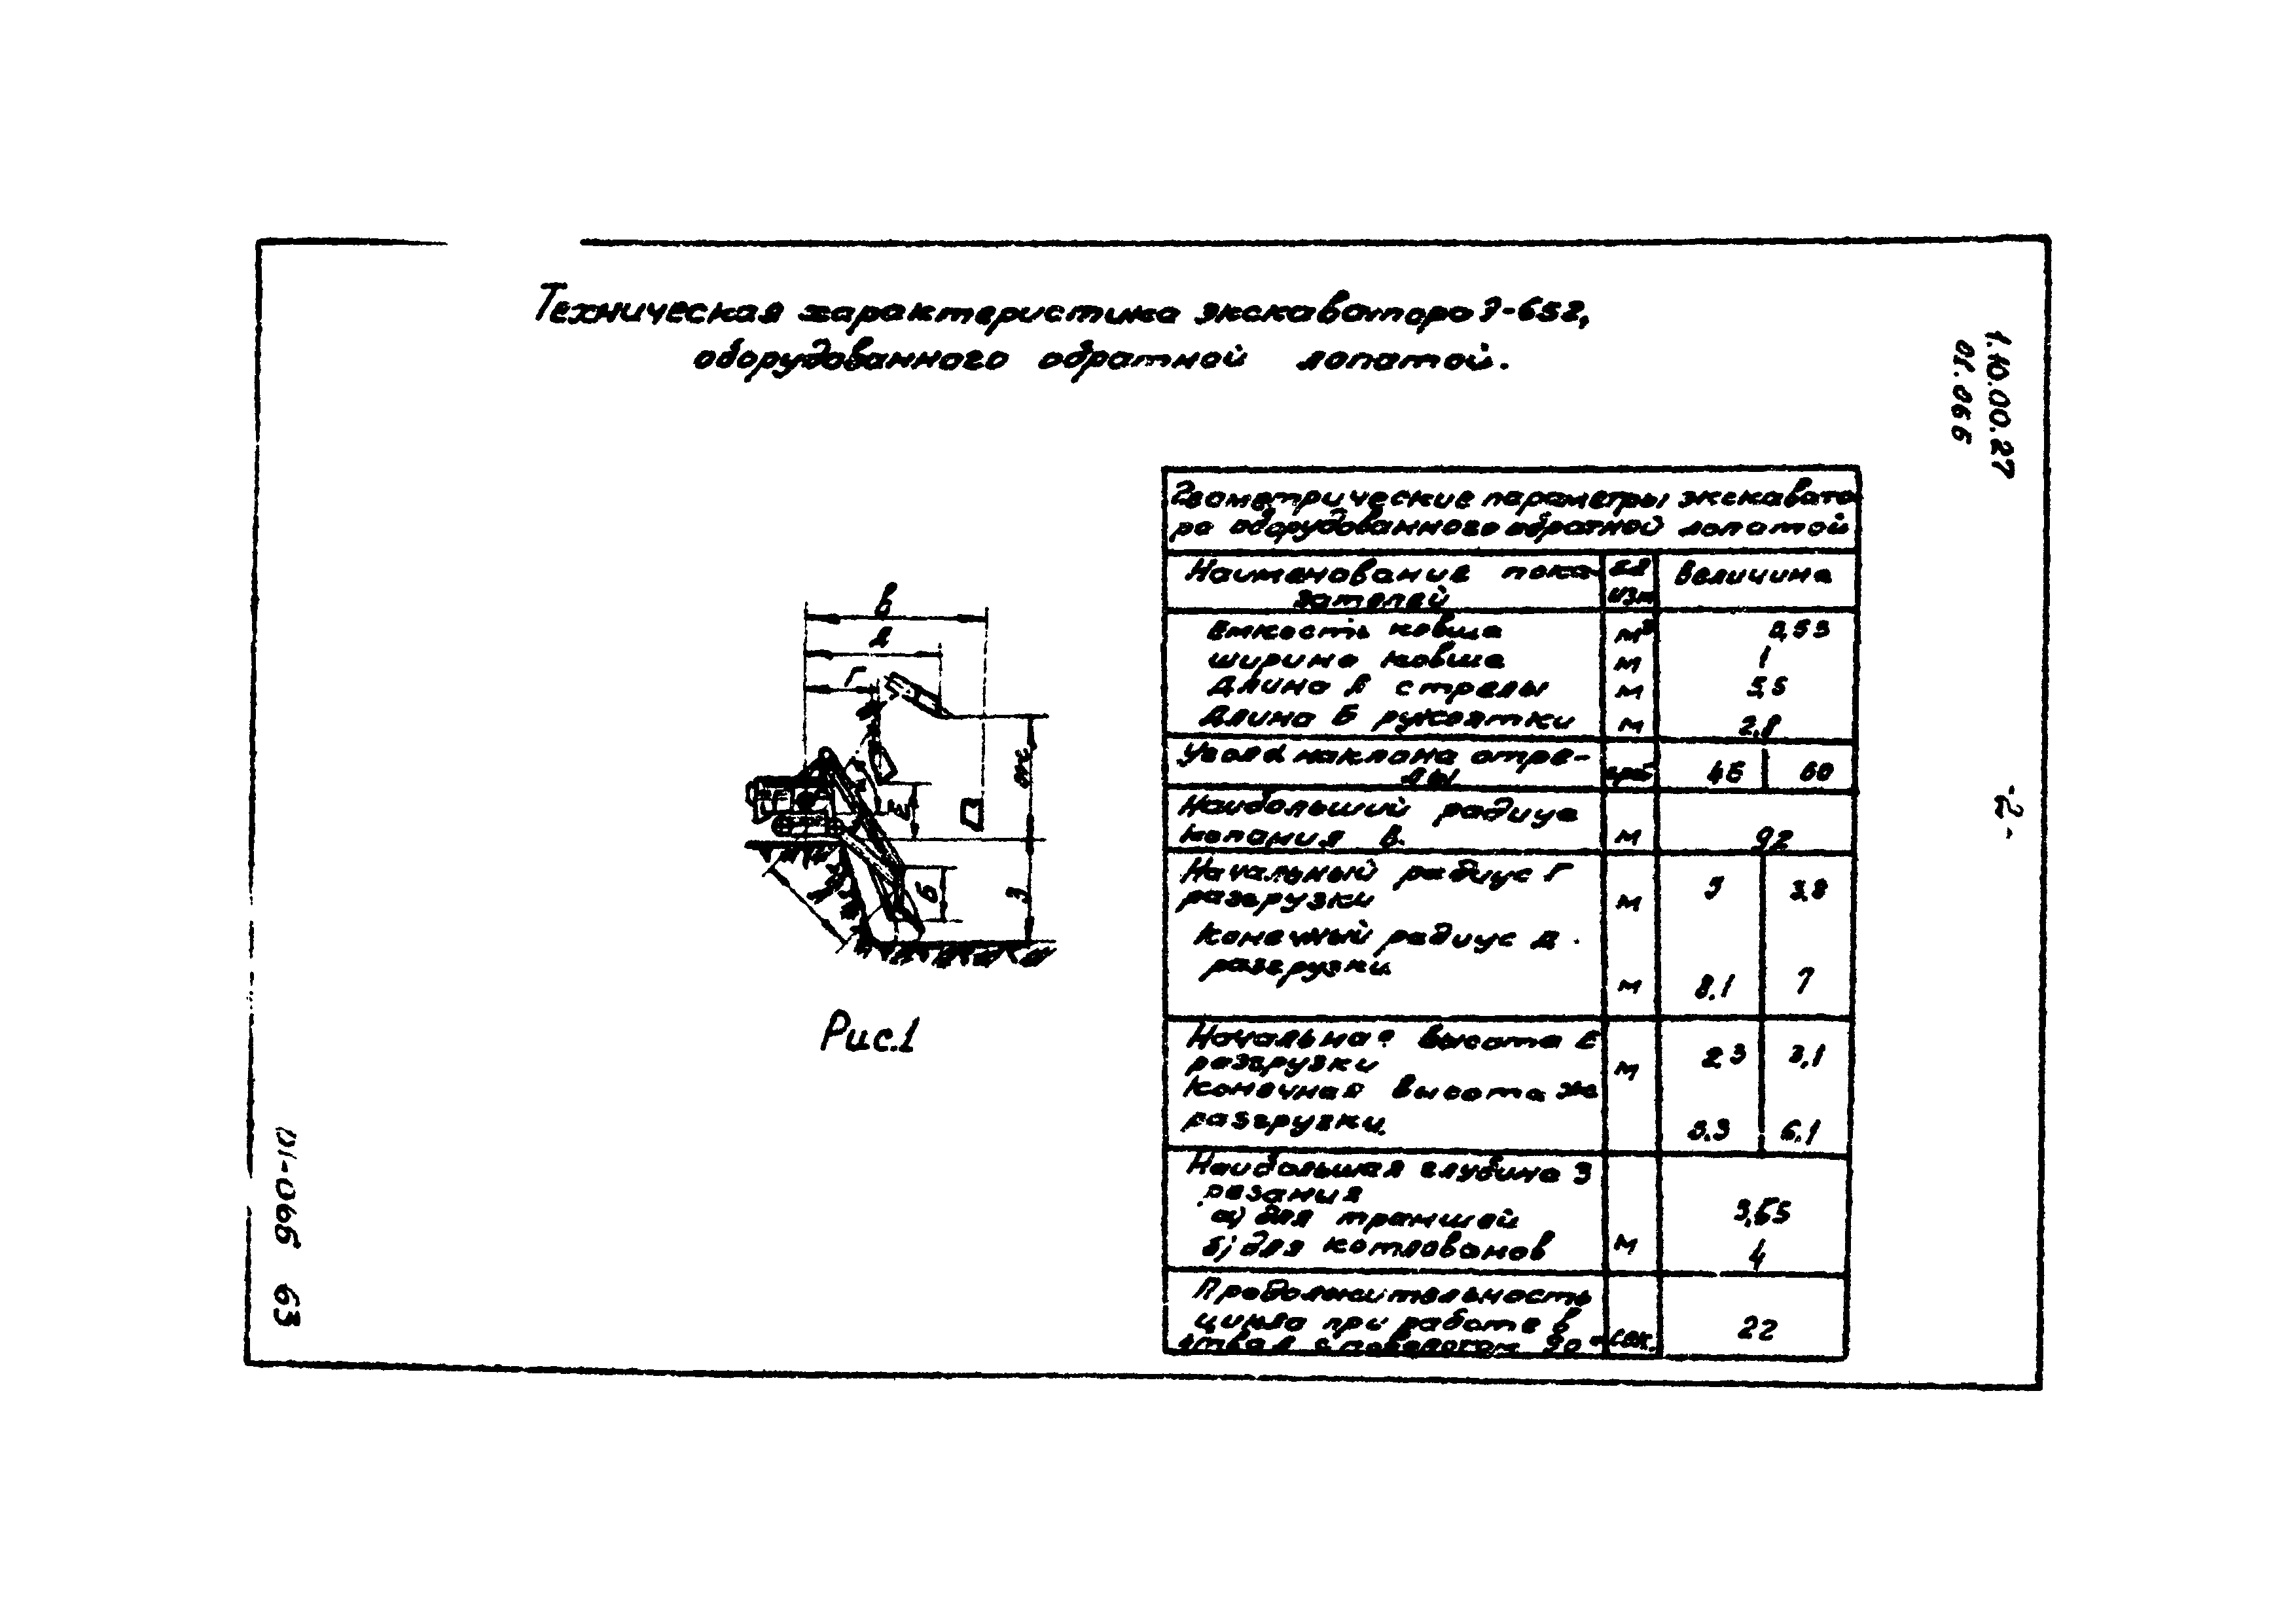 Техническая характеристика экскаватора Э-652,
оборудованного обратной лопатой.
1.10.00.27
01.066
-2-
в
д
г
ж
Е
Б
З
Рис.1
Геометрические параметры экскавато
ра оборудованного обратной лопатой
Наименование пока- ед Величина
зателей изм
Емкость ковша м³ 0,53
ширина ковша м 1
Длина А стрелы м 5,5
Длина Б рукоятки м 2,8
Угол α наклона стре- град 45 60
лы
Наибольший радиус
копания В. м 9,2
Начальный радиус Г 5 3,8
разгрузки м
Конечный радиус Д
разгрузки. м 8,1 7
Начальная высота Е 2,3 3,1
разгрузки м
конечная высота Ж
разгрузки. 5.3 6,1
Наибольшая глубина З
резания
а) для траншей
б) для котлованов м 4
Продолжительность
цикла при работе в 22
отвал с поворотом 90° сек.
01-066 63